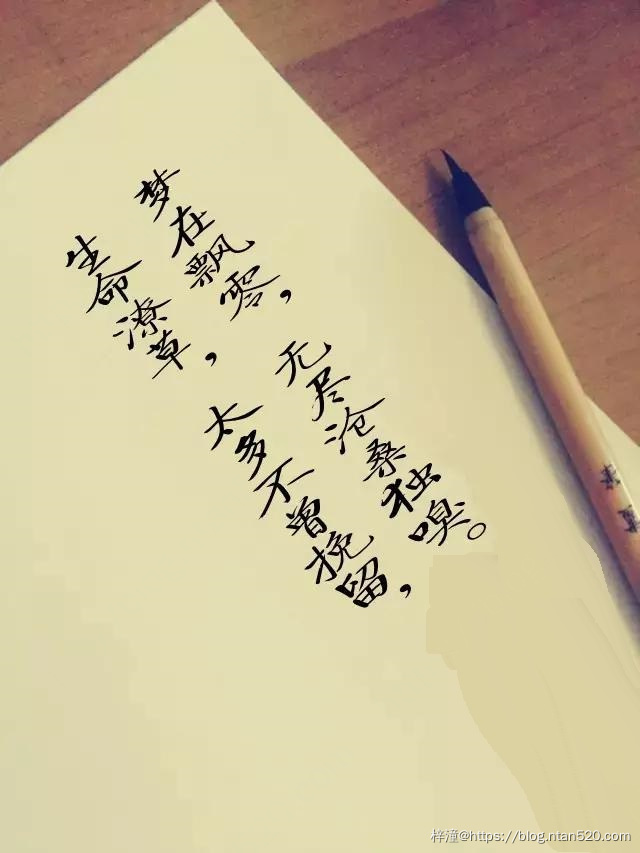 生命潦草，太多不曾挽留，
梦在飘零，无尽沧桑独嗅。
梓潼@https://blog.ntan520.com